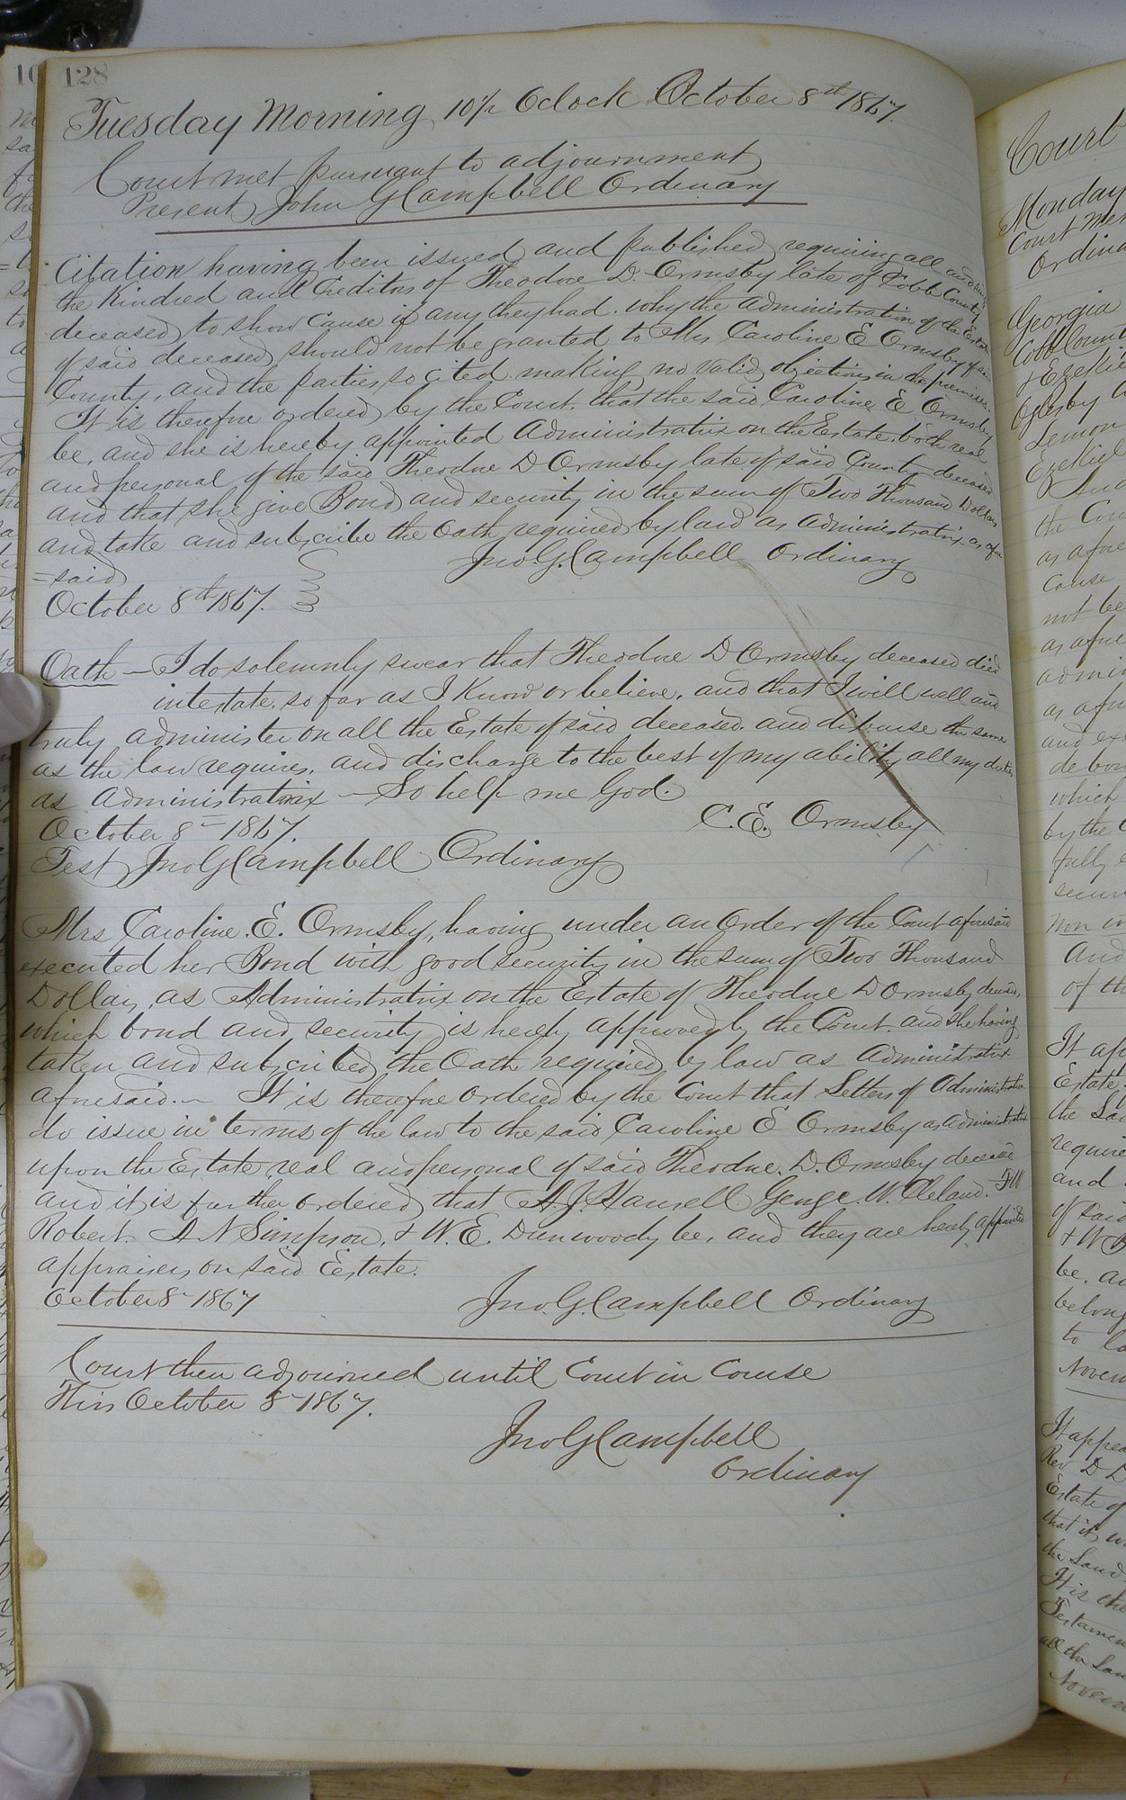 128
Tuesday Morning 10½ Oclock October 8th 1867.
Court met pursuant to adjournment
Present John G Campbell Ordinary
Citation having been issued and published requiring all and
the Kindred and Creditors of Theodore D. Ormsby late of Cobb County
deceased to show cause if any they had. why the administration of the Estate
of said deceased should not be granted to Mrs Caroline E Ormsby of said
County, and the parties so cited making no valid objections in the premises.
It is therefore ordered by the Court. that the said Caroline E Ormsby
be, and she is hereby appointed Administratrix on the Estate. both real
and personal of the said Theodore D Ormsby late of said County deceased
and that she give Bond and security in the sum of Two Thousand Dollars
and take and subscribe the Oath required by law as Administratrix as afore
=said
Jno. G. Campbell Ordinary
October 8th 1867.
Oath — I do solemnly swear that Theodore D Ormsby deceased died
intestate. so far as I Know or believe. and that I will well and
truly administer on all the Estate of said deceased. and disburse the same
as the law requires. and discharge to the best of my ability all my duties
as Administratrix — So help me God.
October 8th 1867.
C. E. Ormsby
Test Jno G Campbell Ordinary
Mrs Caroline. E. Ormsby, having under an Order of the Court aforesaid
executed her Bond with good security in the sum of Two Thousand
Dollars, as Administratrix on the Estate of Theodore D Ormsby
which bond and security is hereby approved by the Court. and she having
taken and subscribed the Oath required by law as Administratrix
aforesaid. — It is therefore ordered by the Court that Letters of Administration
do issue in terms of the law to the said Caroline E Ormsby as Administratrix
upon the Estate real and personal of said Theodore. D. Ormsby deceased
and it is further ordered that A. J. Hansell George. W. Cleland.
Robert. A N Simpson, & W. E. Dunwoody be, and they are hereby appointed
appraisers on said Estate.
October 8th 1867
Jno. G. Campbell Ordinary
Court then adjourned until Court in Course
This October 8th 1867.
Jno G Campbell
Ordinary
Court
Monday
Court met
Ordina
Georgia
Cobb County
& Ezekie
Oglesby
Lemon
Ezekiel
the Cou
as afore
Cause
not be
as afore
admin
as afore
and exe
de bon
which
by the C
fully
secur
non
And
of the
It app
Estate.
the
require
and
of said
& W
be. a
belong
to
Novem
It appea
Rev D D
Estate of
that it
the Land
It is the
Testamen
all the
Novem